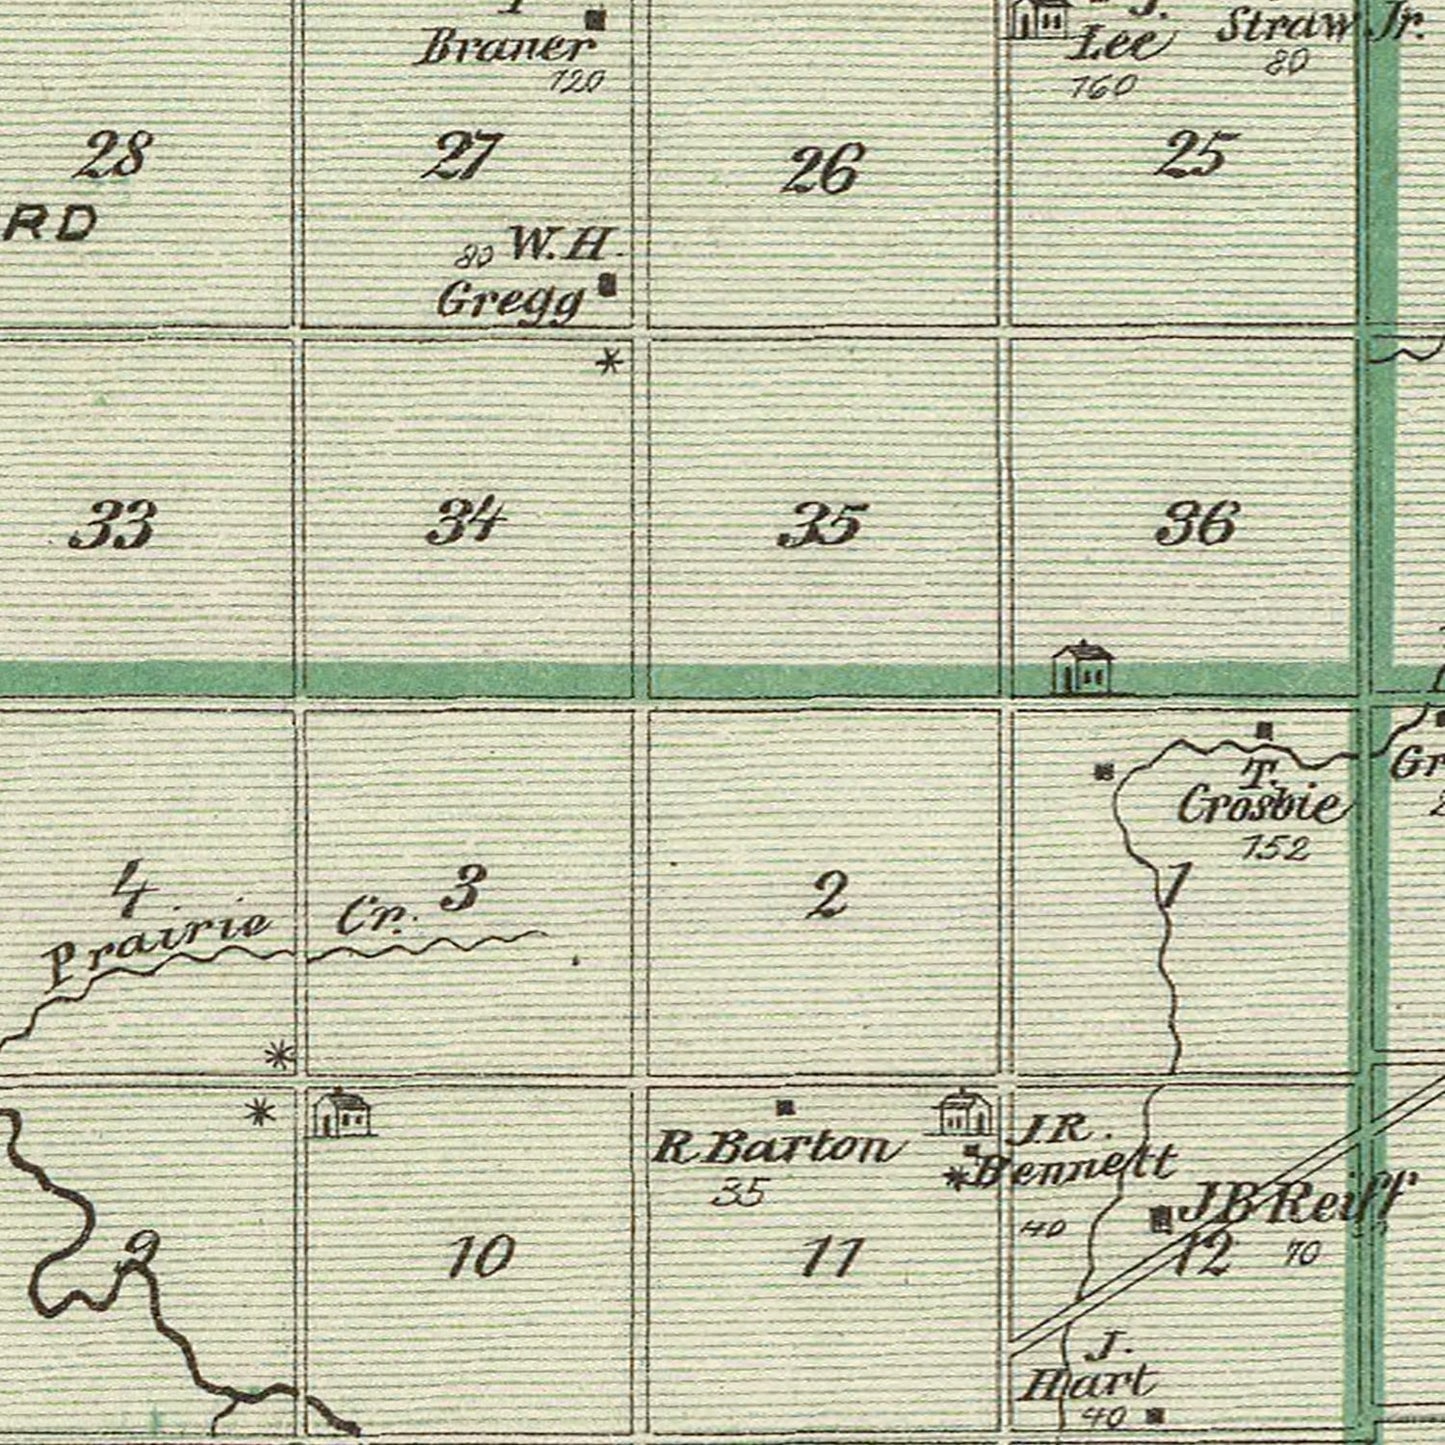 Braner
720
28
27
RD
80 W. H.
Gregg
26
J.
Lee
160
Straw Jr.
80
25
33
34
35
36
T.
Crosbie
152
Gr
4
3
2
1
Prairie Cr.
R. Barton
35
J. R.
Bennett
40
J B Reiff
70
9
10
11
12
J.
Hart
40